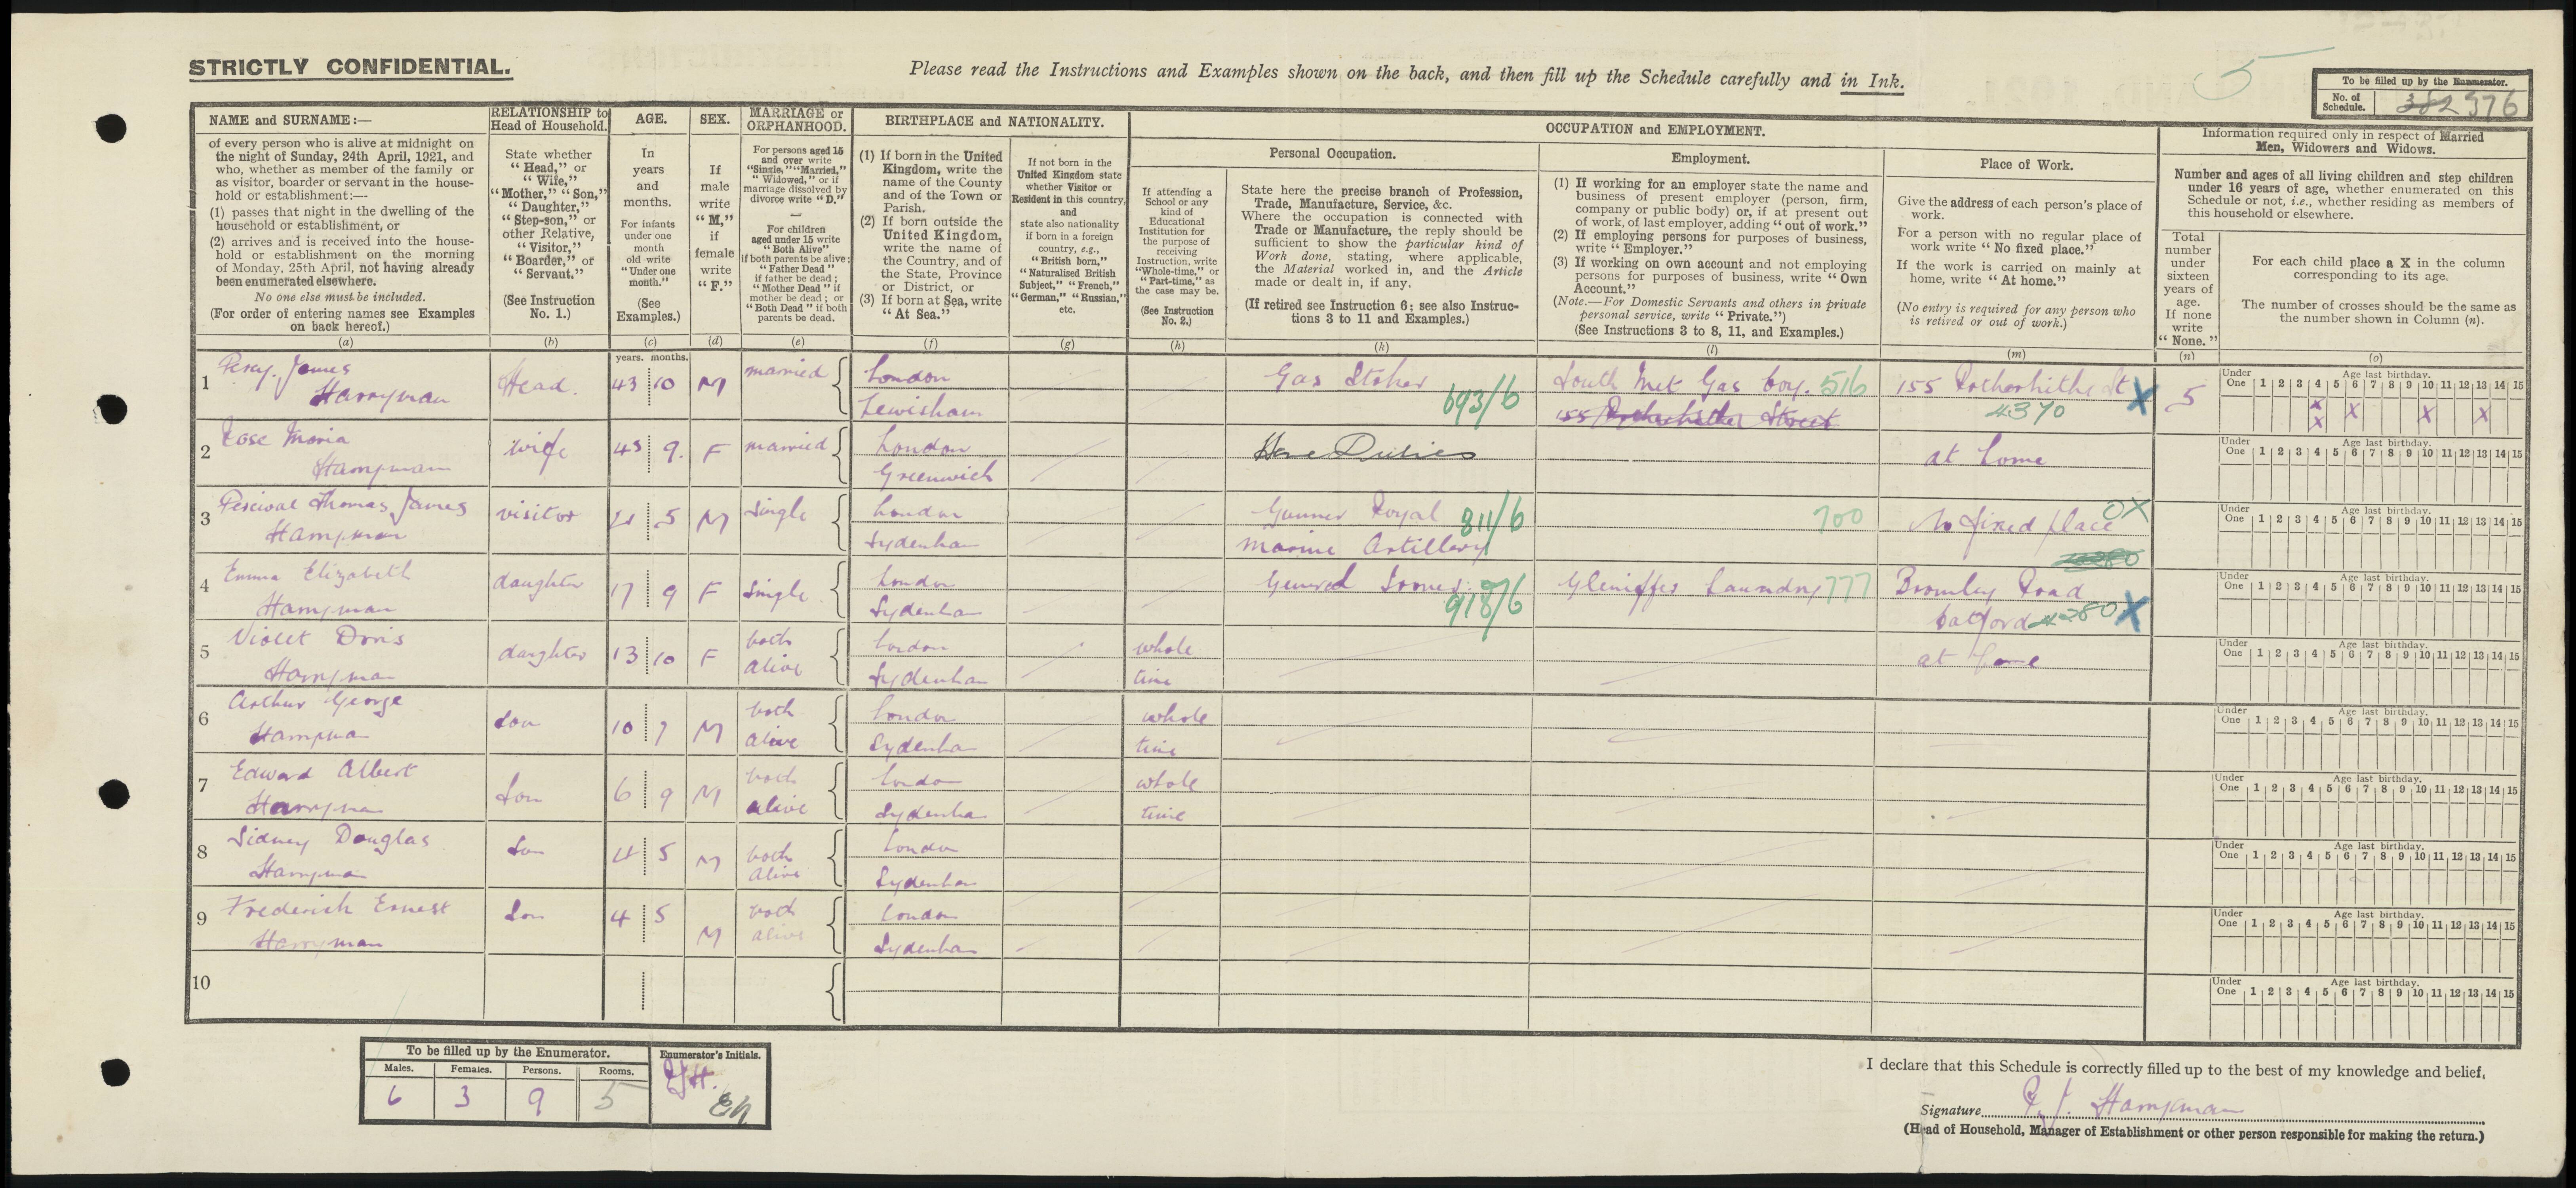 STRICTLY CONFIDENTIAL.
Please read the Instructions and Examples shown on the back, and then fill up the Schedule carefully and in Ink.
5
To be filled up by the Enumerator.
No. of Schedule. 382 376
NAME and SURNAME:—
of every person who is alive at midnight on
the night of Sunday, 24th April, 1921, and
who, whether as member of the family or
as visitor, boarder or servant in the house-
hold or establishment:—
(1) passes that night in the dwelling of the
household or establishment, or
(2) arrives and is received into the house-
hold or establishment on the morning
of Monday, 25th April, not having already
been enumerated elsewhere.
No one else must be included.
(For order of entering names see Examples
on back hereof.)
(a)
RELATIONSHIP to
Head of Household.
State whether
"Head," or
"Wife,"
"Mother," "Son,"
"Daughter,"
"Step-son," or
other Relative,
"Visitor,"
"Boarder," or
"Servant."
(See Instruction
No. 1.)
(b)
AGE.
In
years
and
months.
For infants
under one
month
old write
"Under one
month."
(See
Examples.)
(c)
years. months.
SEX.
If
male
write
"M,"
if
female
write
"F."
(d)
MARRIAGE or
ORPHANHOOD.
For persons aged 15
and over write
"Single," "Married,"
"Widowed," or if
marriage dissolved by
divorce write "D."
For children
aged under 15 write
"Both Alive"
if both parents be alive;
"Father Dead"
if father be dead;
"Mother Dead" if
mother be dead; or
"Both Dead" if both
parents be dead.
(e)
BIRTHPLACE and NATIONALITY.
(1) If born in the United
Kingdom, write the
name of the County
and of the Town or
Parish.
(2) If born outside the
United Kingdom,
write the name of
the Country, and of
the State, Province
or District, or
(3) If born at Sea, write
"At Sea."
(f)
If not born in the
United Kingdom state
whether Visitor or
Resident in this country,
and
state also nationality
if born in a foreign
country, e.g.,
"British born,"
"Naturalised British
Subject," "French,"
"German," "Russian,"
etc.
(g)
OCCUPATION and EMPLOYMENT.
Personal Occupation.
If attending a
School or any
kind of
Educational
Institution for
the purpose of
receiving
Instruction, write
"Whole-time," or
"Part-time," as
the case may be.
(See Instruction
No. 2.)
(h)
State here the precise branch of Profession,
Trade, Manufacture, Service, &c.
Where the occupation is connected with
Trade or Manufacture, the reply should be
sufficient to show the particular kind of
Work done, stating, where applicable,
the Material worked in, and the Article
made or dealt in, if any.
(If retired see Instruction 6; see also Instruc-
tions 3 to 11 and Examples.)
(k)
Employment.
(1) If working for an employer state the name and
business of present employer (person, firm,
company or public body) or, if at present out
of work, of last employer, adding "out of work."
(2) If employing persons for purposes of business,
write "Employer."
(3) If working on own account and not employing
persons for purposes of business, write "Own
Account."
(Note.—For Domestic Servants and others in private
personal service, write "Private.")
(See Instructions 3 to 8, 11, and Examples.)
(l)
Place of Work.
Give the address of each person's place of
work.
For a person with no regular place of
work write "No fixed place."
If the work is carried on mainly at
home, write "At home."
(No entry is required for any person who
is retired or out of work.)
(m)
Information required only in respect of Married
Men, Widowers and Widows.
Number and ages of all living children and step children
under 16 years of age, whether enumerated on this
Schedule or not, i.e., whether residing as members of
this household or elsewhere.
Total
number
under
sixteen
years of
age.
If none
write
"None."
(n)
For each child place a X in the column
corresponding to its age.
The number of crosses should be the same as
the number shown in Column (n).
(o)
Under One Age last birthday.
1 2 3 4 5 6 7 8 9 10 11 12 13 14 15
1 Percy James Harryman Head 43 10 M married London Lewisham Gas Stoker 693/6 South Met Gas Coy. 516 155 Rotherhithe Street 155 Rotherhithe St 4370 X 5 X X X X X
2 Rose Maria Harryman wife 43 9 F married London Greenwich Home Duties at home
3 Percival Thomas James Harryman visitor 21 5 M Single London Sydenham Gunner Royal marine Artillery 811/6 700 No fixed place OX
4 Emma Elizabeth Harryman daughter 17 9 F Single London Sydenham General 918/6 Laundry 777 Bromley Road Catford 4280 X
5 Violet Doris Harryman daughter 13 10 F both alive London Sydenham whole time at home
6 Arthur George Harryman Son 10 7 M both alive London Sydenham whole time
7 Edward Albert Harryman Son 6 9 M both alive London Sydenham whole time
8 Sidney Douglas Harryman Son 4 5 M both alive London Sydenham
9 Frederick Ernest Harryman Son 4 5 M both alive London Sydenham
10
To be filled up by the Enumerator.
Males. Females. Persons. Rooms.
6 3 9 5
Enumerator's Initials.
I declare that this Schedule is correctly filled up to the best of my knowledge and belief.
Signature P. J. Harryman
(Head of Household, Manager of Establishment or other person responsible for making the return.)